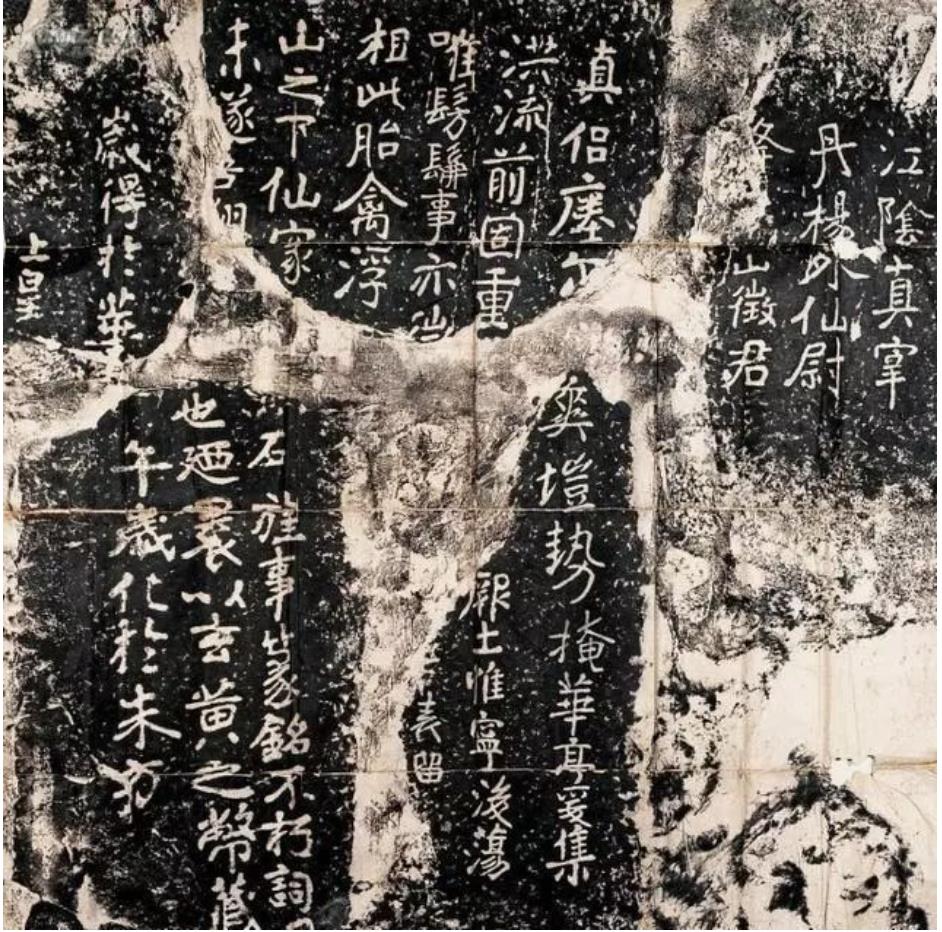 上皇
歲得於華
午歲化於朱方
未遂吾翔
也廼裹以玄黃之幣藏
山之下仙家
石旌事篆銘不朽詞
相此胎禽浮
唯髣髴事亦微
表留
洪流前固重
厥土惟寧後蕩
爽塏勢掩華亭爰集
真侶瘞尔
山徵君
丹楊外仙尉
江陰真宰